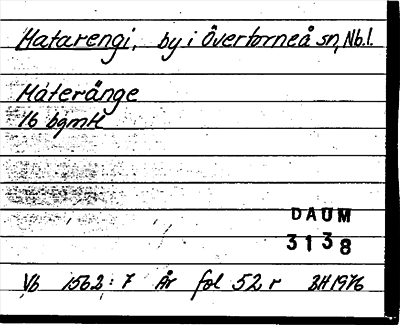 Matarengi, by i Övertorneå sn, Nb.l.
Måteränge
16 bgmH
DAUM
3138
Vb 1562:7 År fol 52 r BH 1976